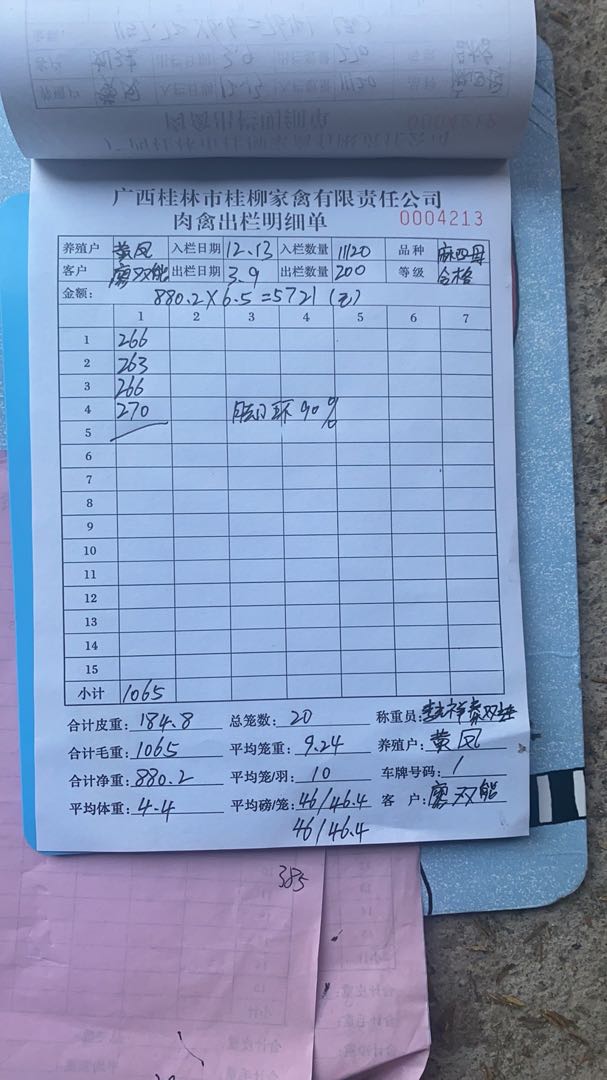 广西桂林市桂柳家禽有限责任公司
肉禽出栏明细单
0004213
养殖户 黄凤 入栏日期 12.13 入栏数量 11120 品种 麻四母
客户 廖双能 出栏日期 3.9 出栏数量 200 等级 合格
金额: 880.2×6.5=5721(元)
1 2 3 4 5 6 7
1 266
2 263
3 266
4 270 90%
5
6
7
8
9
10
11
12
13
14
15
小计 1065
合计皮重: 184.8 总笼数: 20 称重员:
合计毛重: 1065 平均笼重: 9.24 养殖户: 黄凤
合计净重: 880.2 平均笼/羽: 10 车牌号码: /
平均体重: 4.4 平均磅/笼: 46/46.4 客户: 廖双能
46/46.4
385